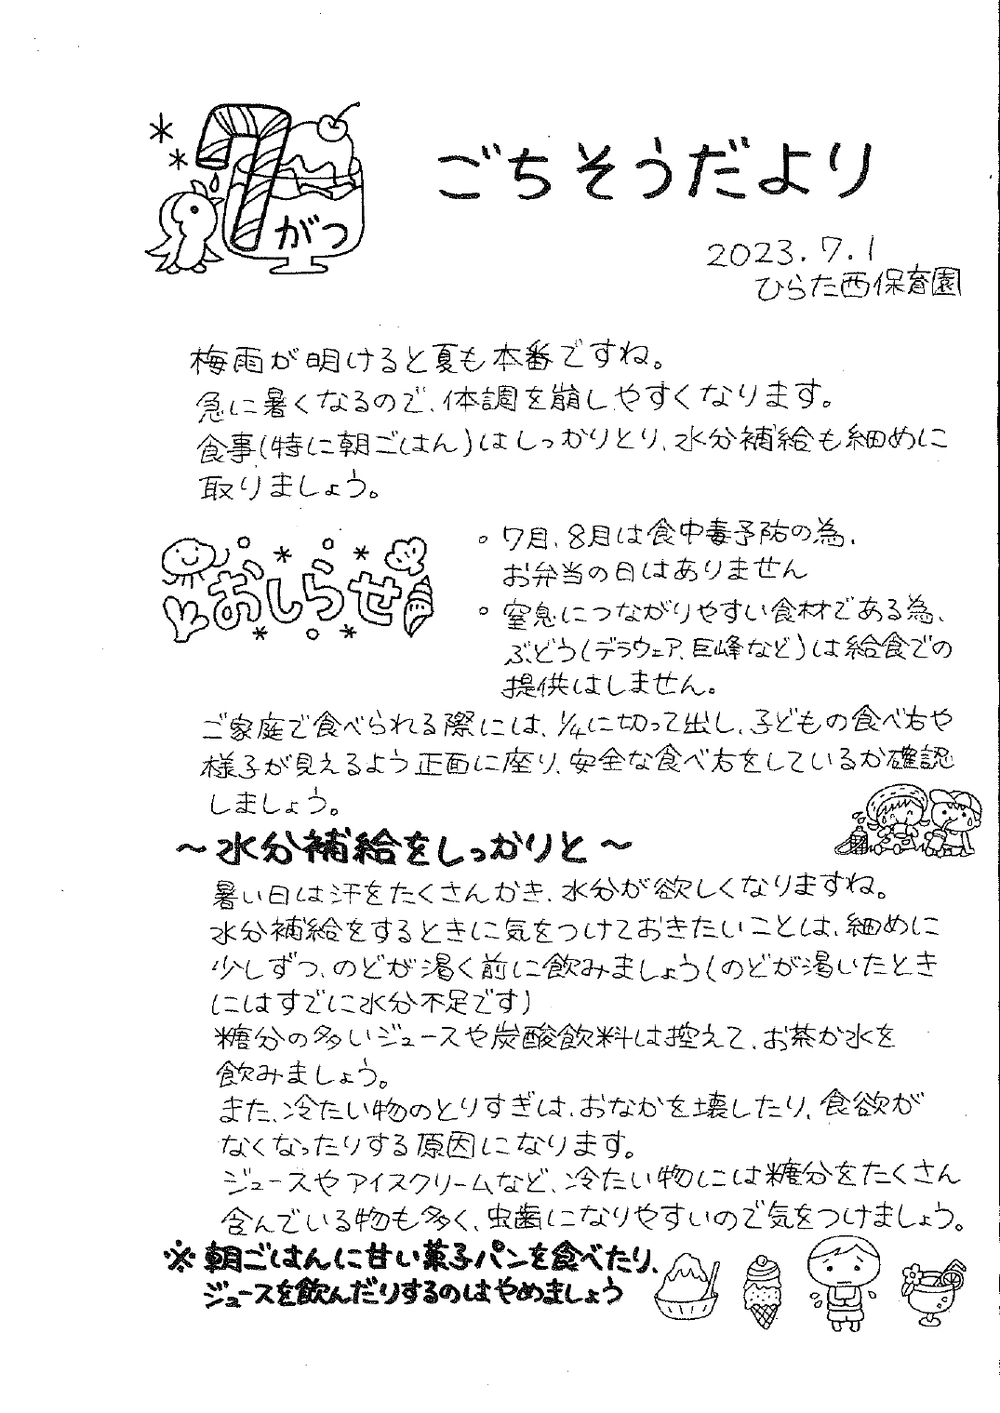 7がつ
ごちそうだより
2023.7.1
ひらた西保育園
梅雨が明けると夏も本番ですね。
急に暑くなるので、体調を崩しやすくなります。
食事(特に朝ごはん)はしっかりとり、水分補給も細めに
取りましょう。
おしらせ
。7月、8月は食中毒予防の為、
お弁当の日はありません
。窒息につながりやすい食材である為、
ぶどう(デラウェア、巨峰など)は給食での
提供はしません。
ご家庭で食べられる際には、1/4に切って出し、子どもの食べ方や
様子が見えるよう正面に座り、安全な食べ方をしているか確認
しましょう。
〜水分補給をしっかりと〜
暑い日は汗をたくさんかき、水分が欲しくなりますね。
水分補給をするときに気をつけておきたいことは、細めに
少しずつ、のどが渇く前に飲みましょう(のどが渇いたとき
にはすでに水分不足です)
糖分の多いジュースや炭酸飲料は控えて、お茶か水を
飲みましょう。
また、冷たい物のとりすぎは、おなかを壊したり、食欲が
なくなったりする原因になります。
ジュースやアイスクリームなど、冷たい物には糖分をたくさん
含んでいる物も多く、虫歯になりやすいので気をつけましょう。
※朝ごはんに甘い菓子パンを食べたり、
ジュースを飲んだりするのはやめましょう